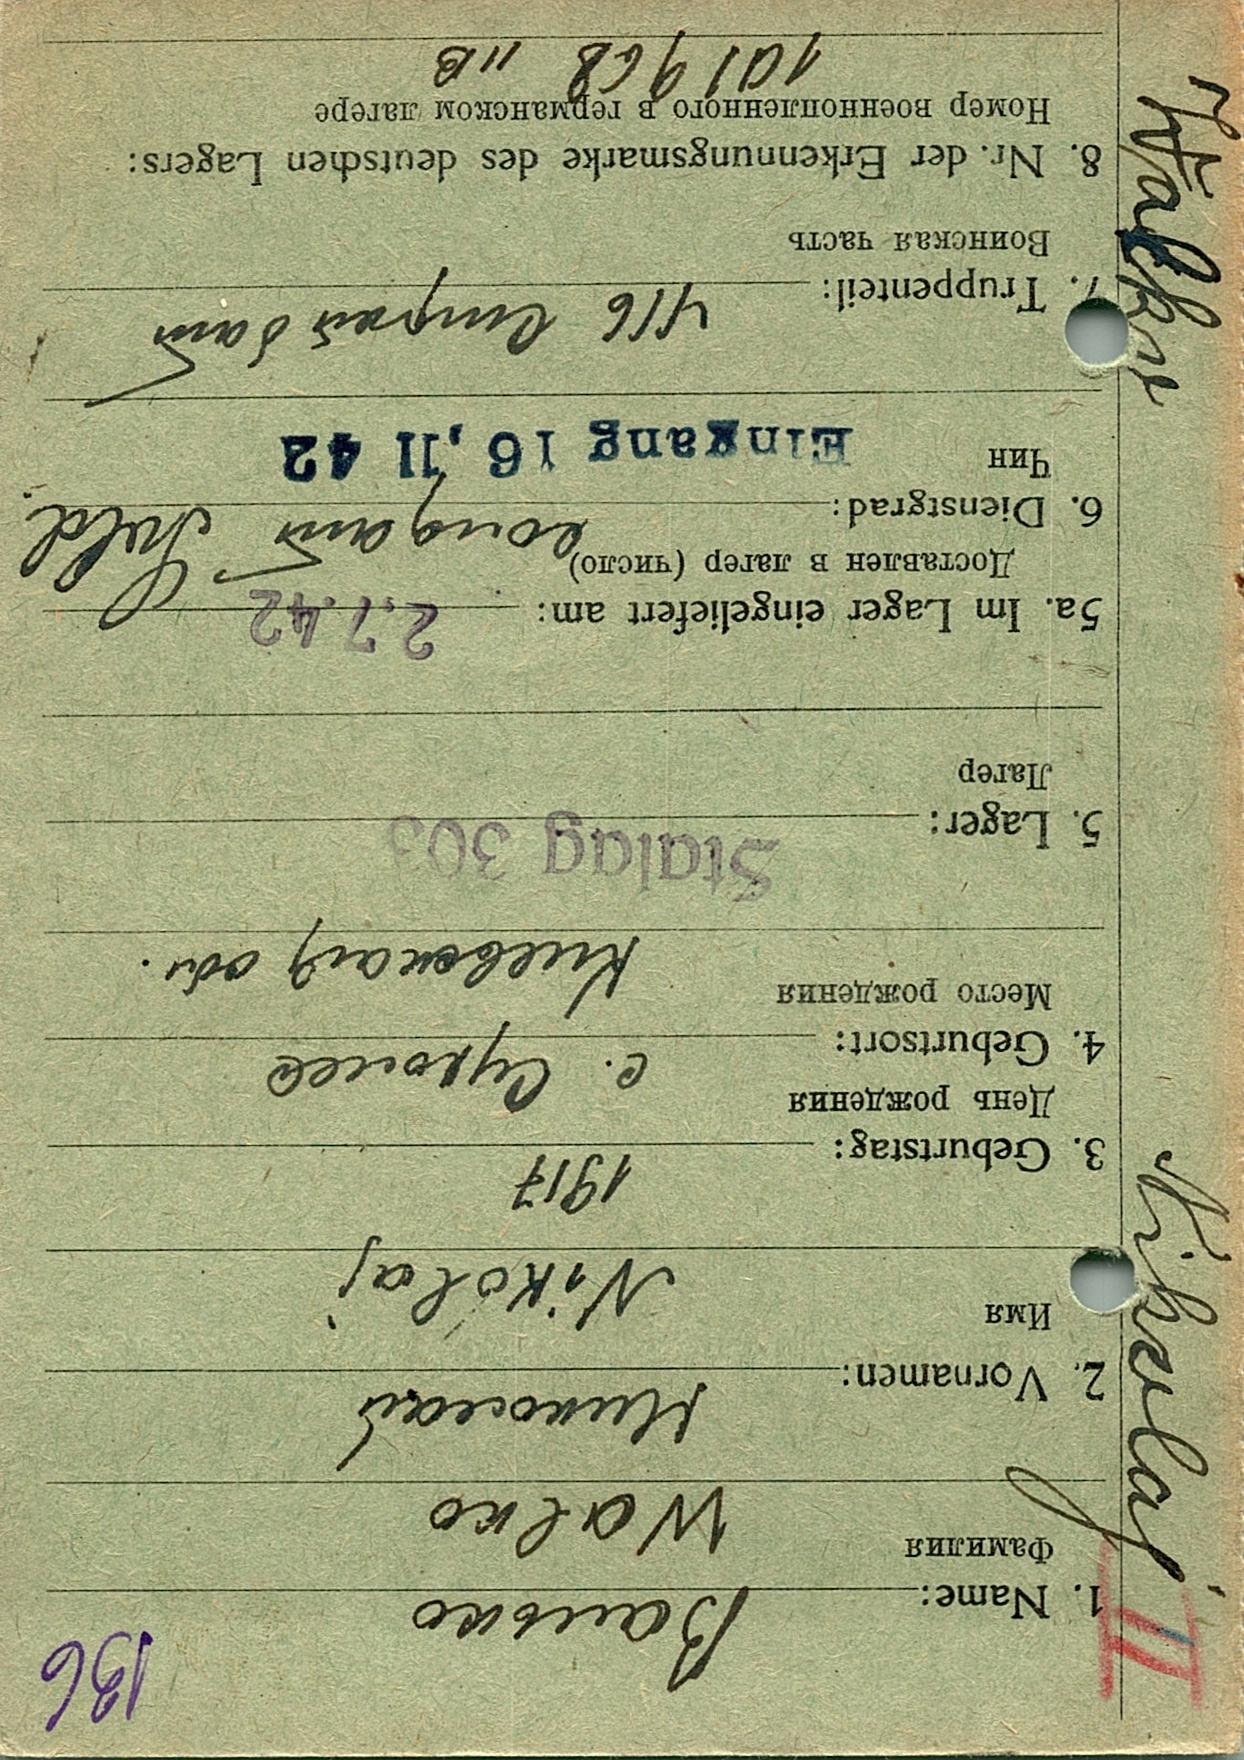 136
II
1. Name: Валько
Фамилия
Walko
2. Vornamen: Николай
Имя
Nikolaj
3. Geburtstag: 1917
День рождения
4. Geburtsort: с.
Место рождения
Киевской обл.
5. Lager: Stalag 303
Лагер
5a. Im Lager eingeliefert am: 2.7.42
Доставлен в лагер (число)
6. Dienstgrad: солдат Sold.
Чин
Eingang 16, 11 42
7. Truppenteil: 416 батл
Воинская часть
8. Nr. der Erkennungsmarke des deutschen Lagers:
Номер военнопленного в германском лагере
101968 II B
Nikolaj Walko